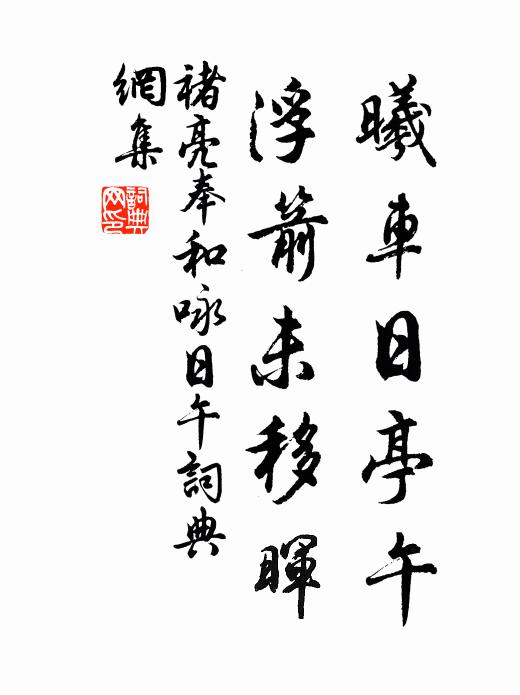 曦車日亭午
浮箭未移暉
褚亮奉和咏日午詞典
網集
詞典
网印